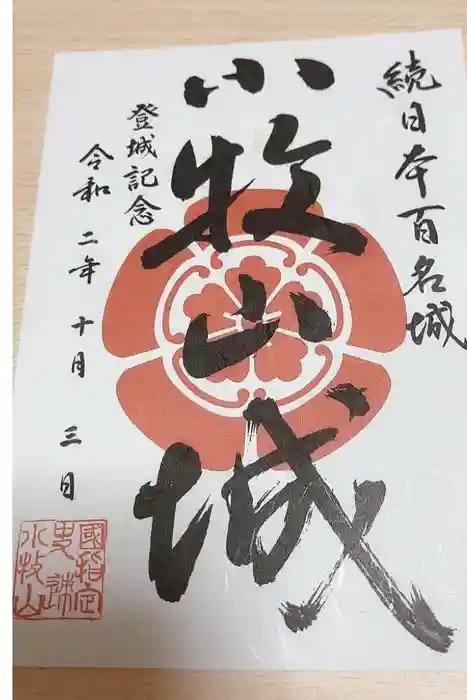 続日本百名城
小牧山城
登城記念
令和二年十月三日
國指定
史跡
小牧山